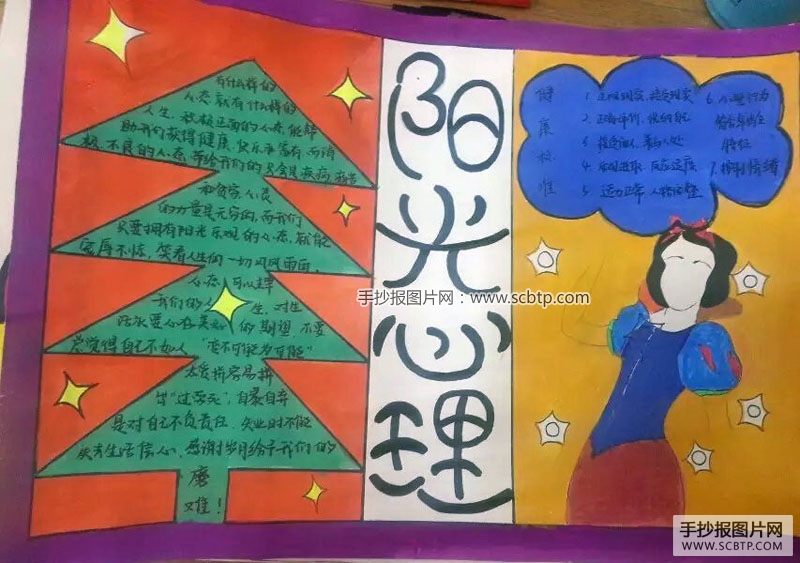 有什么样的
心态就有什么样的
人生.积极正面的心态能帮
助我们获得健康、快乐和富有,而消
极、不良的心态,带给我们的只会是疾病
的力量是无穷的,而我们
只要拥有阳光乐观的心态,就能
宠辱不惊,笑看人生的一切风风雨雨。
心态可以主宰
我们的人生,对生
活永远心存美好的期望,不要
总觉得自己不如人,“变不可能为可能”
自暴自弃
是对自己不负责任,失业时不能
失去生活信心,感谢岁月给予我们的
磨
难!
阳光心理
健康标准
1.正视现实,接受现实
2.正确评价,悦纳自己
3.接受他人,善与人处
5.适力正常,人格完整
6.心理行为
特征
7.控制情绪
手抄报图片网:www.scbtp.com
手抄报图片网
WWW.SCBTP.COM